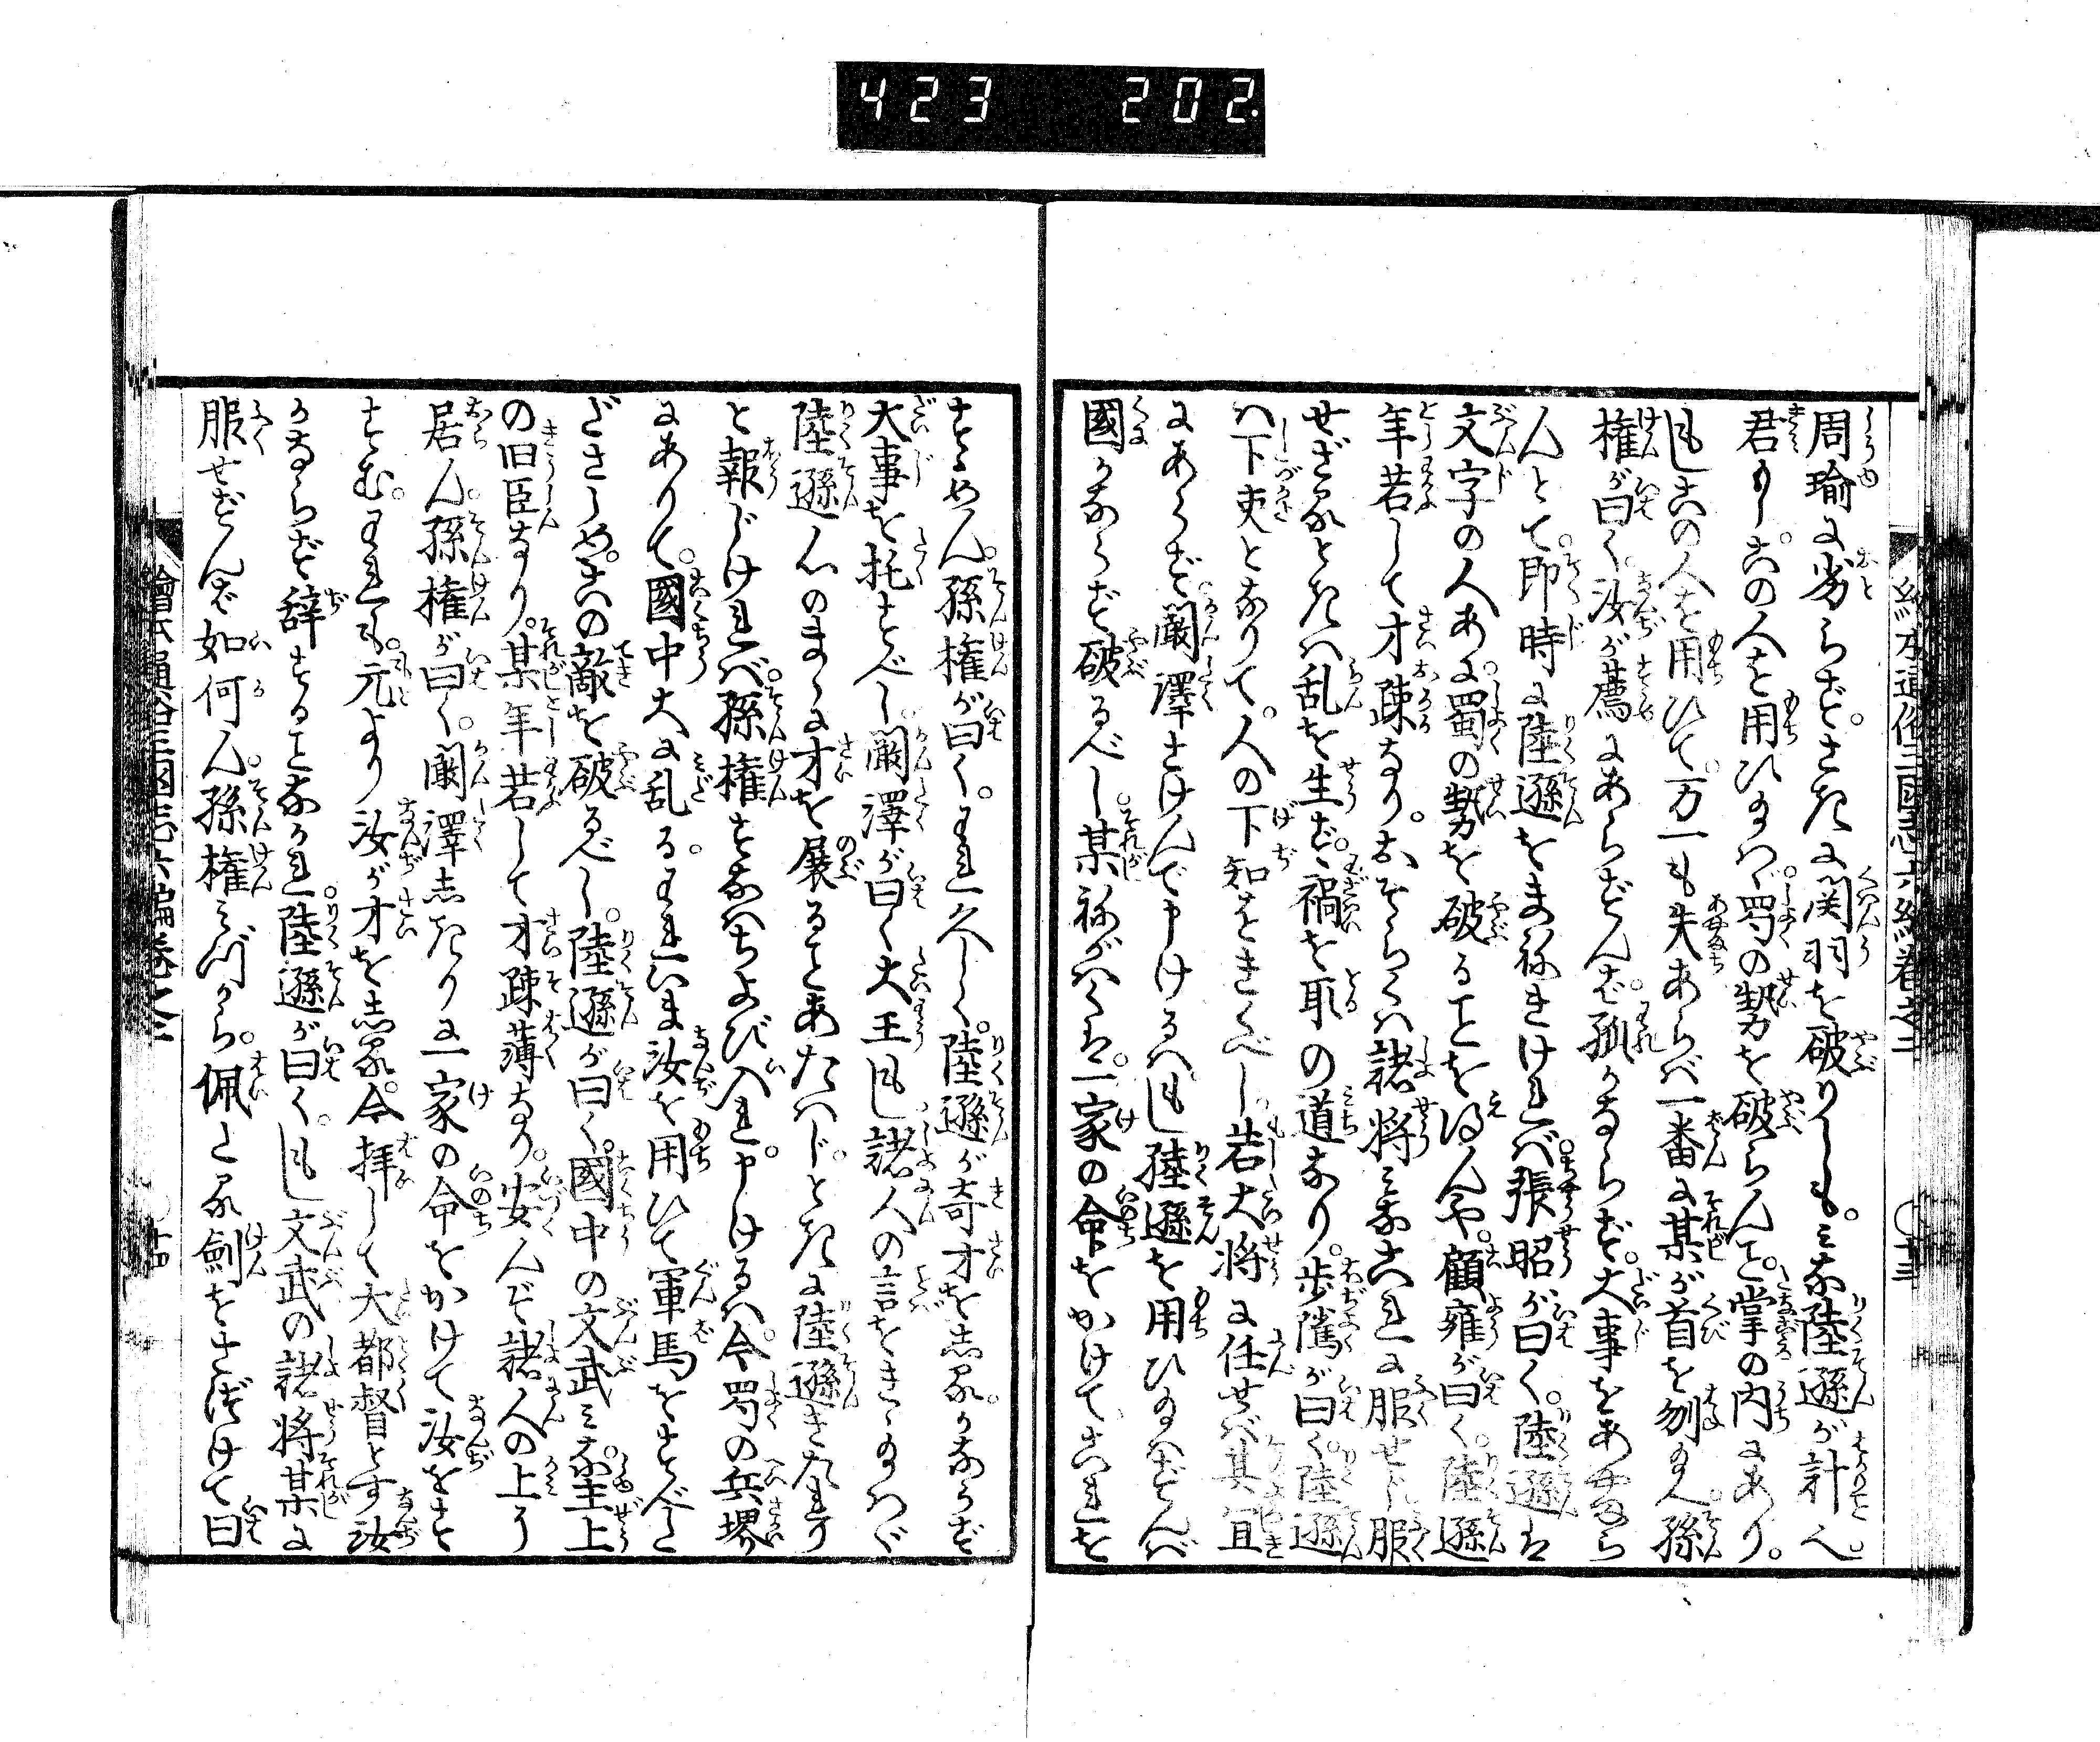 423 202
周瑜に劣らず。さきに関羽を破りしも。みな陸遜が計へ。
君もしこの人を用ひ玉はゞ。蜀の勢を破らんこと。掌の内にあり。
もしこの人を用ひて。万一も失あらば一番に某が首を刎玉へ。孫
権が曰く。汝が薦にあらずんば。孤かならず。大事をあやまら
んとて。即時に陸遜をまねきければ。張昭が曰く。陸遜は
文字の人あに。蜀の勢を破ることを得んや。顧雍が曰く。陸遜
年若して才疎なり。おそらくは諸将みなこれに服せじ。服
せざるときは乱を生ず。禍を取の道なり。歩隲が曰く。陸遜
は下吏となりて。人の下知をきくべし。若大将に任せば其宜
にあらず。闞澤すゝんで申けるは。もし陸遜を用ひ玉はずんば
國かならず破るべし。某ねがはくは。一家の命をかけてこれを
すゝめん。孫権が曰く。われ久しく。陸遜が奇才をしる。かならず
大事を托すべし。闞澤が曰く大王もし諸人の言をきゝ玉はゞ
陸遜心のまゝに才を展ることあたはじ。ときに陸遜きたれり
と報じければ。孫権すなはちよび入れ。申けるは。今蜀の兵堺
にありて。國中大に乱る。われいま汝を用ひて軍馬をすべつ
ざさしめ。この敵を破るべし。陸遜が曰く。國中の文武みな。主上
の旧臣なり。某年若して才疎薄なり。安んぞ諸人の上に
居ん。孫権が曰く。闞澤すでに一家の命をかけて汝をす
すむ。われも。元より汝が才をしる。今拝して大都督とす汝
かならず辞することなかれ。陸遜が曰く。もし文武の諸将某に
服せずんば如何ん。孫権みづから。佩たる劍をさづけて曰
繪本通俗三国志六編巻之二
十三
繪本通俗三国志六編巻之二
十四